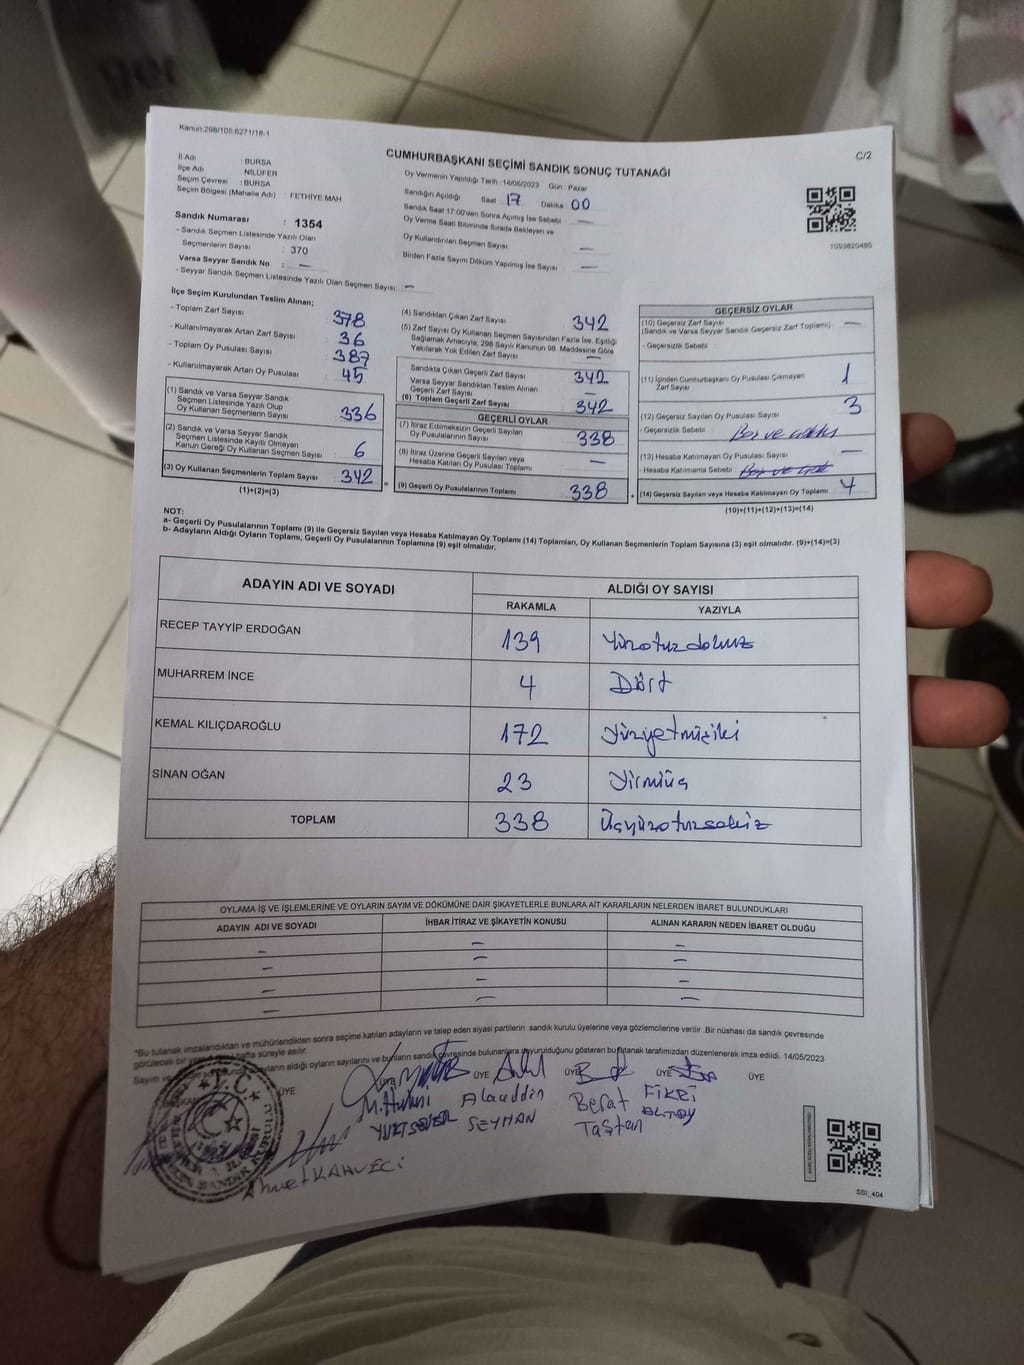 Kanun:298/105,6271/18-1
C/2
CUMHURBAŞKANI SEÇİMİ SANDIK SONUÇ TUTANAĞI
İl Adı : BURSA
İlçe Adı : NİLÜFER
Seçim Çevresi : BURSA
Seçim Bölgesi (Mahalle Adı) : FETHİYE MAH
Sandık Numarası : 1354
- Sandık Seçmen Listesinde Yazılı Olan
Seçmenlerin Sayısı : 370
Varsa Seyyar Sandık No : —
- Seyyar Sandık Seçmen Listesinde Yazılı Olan Seçmen Sayısı : —
Oy Vermenin Yapıldığı Tarih : 14/05/2023 Gün : Pazar
Sandığın Açıldığı Saat 17 Dakika 00
Sandık Saat 17.00'den Sonra Açılmış İse Sebebi : —
Oy Verme Saati Bitiminde Sırada Bekleyen ve
Oy Kullandırılan Seçmen Sayısı : —
Birden Fazla Sayım Döküm Yapılmış İse Sayısı : —
1093820485
İlçe Seçim Kurulundan Teslim Alınan;
- Toplam Zarf Sayısı : 378
- Kullanılmayarak Artan Zarf Sayısı : 36
- Toplam Oy Pusulası Sayısı : 387
- Kullanılmayarak Artan Oy Pusulası : 45
(1) Sandık ve Varsa Seyyar Sandık
Seçmen Listesinde Yazılı Olup
Oy Kullanan Seçmenlerin Sayısı : 336
(2) Sandık ve Varsa Seyyar Sandık
Seçmen Listesinde Kayıtlı Olmayan
Kanun Gereği Oy Kullanan Seçmen Sayısı : 6
(3) Oy Kullanan Seçmenlerin Toplam Sayısı : 342
(1)+(2)=(3)
(4) Sandıktan Çıkan Zarf Sayısı : 342
(5) Zarf Sayısı Oy Kullanan Seçmen Sayısından Fazla İse, Eşitliği
Sağlamak Amacıyla, 298 Sayılı Kanunun 98. Maddesine Göre
Yakılarak Yok Edilen Zarf Sayısı : —
Sandıkta Çıkan Geçerli Zarf Sayısı : 342
Varsa Seyyar Sandıktan Teslim Alınan
Geçerli Zarf Sayısı : —
(6) Toplam Geçerli Zarf Sayısı : 342
GEÇERLİ OYLAR
(7) İtiraz Edilmeksizin Geçerli Sayılan
Oy Pusulalarının Sayısı : 338
(8) İtiraz Üzerine Geçerli Sayılan veya
Hesaba Katılan Oy Pusulası Toplamı : —
(9) Geçerli Oy Pusulalarının Toplamı : 338
GEÇERSİZ OYLAR
(10) Geçersiz Zarf Sayısı : —
(Sandık ve Varsa Seyyar Sandık Geçersiz Zarf Toplamı)
- Geçersizlik Sebebi :
(11) İçinden Cumhurbaşkanı Oy Pusulası Çıkmayan
Zarf Sayısı : 1
(12) Geçersiz Sayılan Oy Pusulası Sayısı : 3
- Geçersizlik Sebebi : Boş ve
(13) Hesaba Katılmayan Oy Pusulası Sayısı : —
- Hesaba Katılmama Sebebi :
(14) Geçersiz Sayılan veya Hesaba Katılmayan Oy Toplamı : 4
(10)+(11)+(12)+(13)=(14)
NOT:
a- Geçerli Oy Pusulalarının Toplamı (9) ile Geçersiz Sayılan veya Hesaba Katılmayan Oy Toplamı (14) Toplamları, Oy Kullanan Seçmenlerin Toplam Sayısına (3) eşit olmalıdır. (9)+(14)=(3)
b- Adayların Aldığı Oyların Toplamı, Geçerli Oy Pusulalarının Toplamına (9) eşit olmalıdır.
ADAYIN ADI VE SOYADI ALDIĞI OY SAYISI
RAKAMLA YAZIYLA
RECEP TAYYİP ERDOĞAN 139 Yüzotuzdokuz
MUHARREM İNCE 4 Dört
KEMAL KILIÇDAROĞLU 172 Yüzyetmişiki
SİNAN OĞAN 23 Yirmiüç
TOPLAM 338 Üçyüzotuzsekiz
OYLAMA İŞ VE İŞLEMLERİNE VE OYLARIN SAYIM VE DÖKÜMÜNE DAİR ŞİKAYETLERLE BUNLARA AİT KARARLARIN NELERDEN İBARET BULUNDUKLARI
ADAYIN ADI VE SOYADI İHBAR İTİRAZ VE ŞİKAYETİN KONUSU ALINAN KARARIN NEDEN İBARET OLDUĞU
— — —
— — —
— — —
— — —
"Bu tutanak imzalandıktan ve mühürlendikten sonra seçime katılan adayların ve talep eden siyasi partilerin sandık kurulu üyelerine veya gözlemcilerine verilir. Bir nüshası da sandık çevresinde
görülecek bir hafta süreyle asılır.
Sayım aldığı oyların sayılarını ve bunların sandık çevresinde bulunanlara duyurulduğunu gösteren bu tutanak tarafımızdan düzenlenerek imza edildi. 14/05/2023
ÜYE ÜYE ÜYE ÜYE ÜYE
Alauddin SEYHAN
Berat Taştan
FİKRİ
Ahmet KAHVECİ
T.C.
SANDIK KURULU
SSI_404